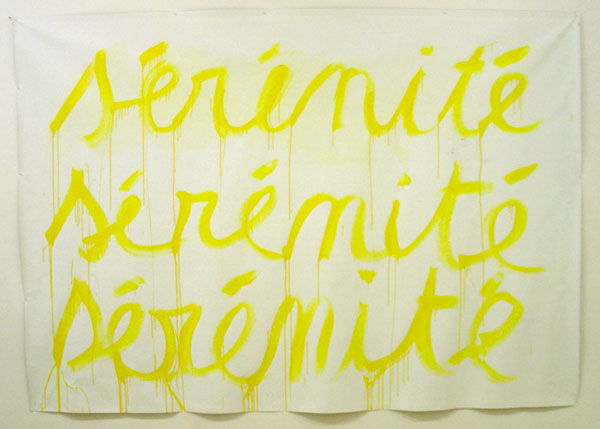 sérénité
sérénité
sérénité